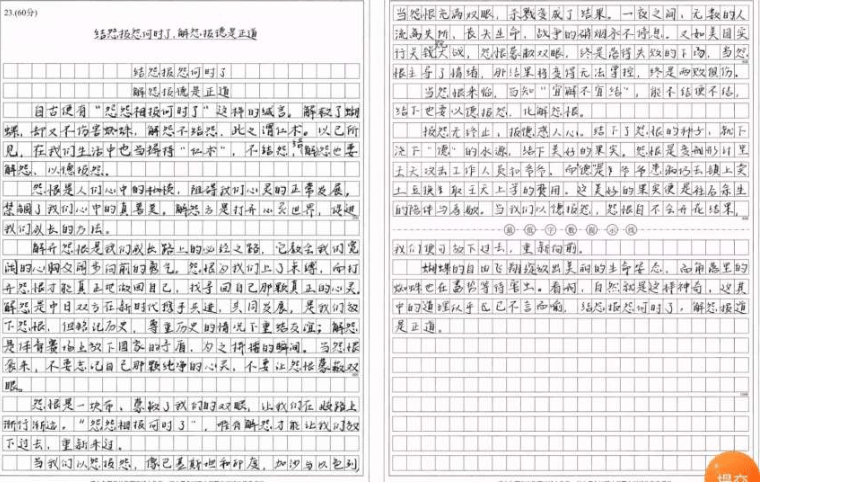 23.(60分)
结怨报怨何时了,解怨报德是正道
结怨报怨何时了
解怨报德是正道
自古便有“怨怨相报何时了”这样的诚言。解救了蝴
蝶,却又不伤害蜘蛛,解怨不结怨,此之谓仁本。以己所
见,在我们生活中也当择得“仁本”,不结怨,结解怨也要
解怨,以德报怨。
怨恨是人们心中的,阻碍我们心灵的正常发展,
禁锢了我们心中的真善美。解怨方是打开心灵世界,促进
我们成长的方法。
解开怨恨是我们成长路上的必经之路,它教会我们宽
阔的心胸及阔步向前的勇气。怨恨为我们上了末缚,而打
开怨恨才能真正地做回自己,找寻回自己那颗真正的心灵。
解怨是中日双方在新时代携手共进,共同发展,是我们放
下怨恨,但铭记历史,尊重历史的情况下重结友谊;解怨
是体育赛场上放下国家的矛盾,为之拼搏的瞬间。当怨恨
袭来,不要忘记自己那颗纯净的心灵,不要让怨恨蒙蔽双
眼。
怨恨是一块布,蒙蔽了我们的双眼,让我们在歧路上
渐行渐远。“怨怨相报何时了”,唯有解怨才能让我们放
下过去,重新来过。
当我们以怨报怨,像巴基斯坦和印度,加沙与以色列
当怨恨充满双眼,杀戮变成了结果。一夜之间,无数的人
流离失所,丧失生命,战争的硝烟永不停息。又如美国实
行关税大战,怨恨蒙蔽双眼,终是落得失败的下场,当怨
恨主导了情绪,那结果将变得无法掌控,终是两败俱伤。
当怨恨来临,当知“宜解不宜结”,能不结便不结,
结下也要以德报怨,化解怨恨。
报怨无终止,报德感人心。结下了怨恨的种子,就下
浇下“德”的水源,结下美好的果实。怨恨是变形计里
王天攻击工作人员和爷爷。而德是爷爷奶奶仍去镇上卖
土豆换来取王天上学的费用。这美好的果实便是往后余生
的陪伴与孝敬。当我们以德报怨,怨恨自不会开花结果,
最低字数提示线
我们便可放下过去,重新向前。
蝴蝶的自由飞翔绽放出美丽的生命姿态,而角落里的
蜘蛛也在蓄势等待蜇出。看啊,自然就是这样神奇,这其
中的道理似乎已不言而喻,结怨报怨何时了,解怨报道
是正道。
提交